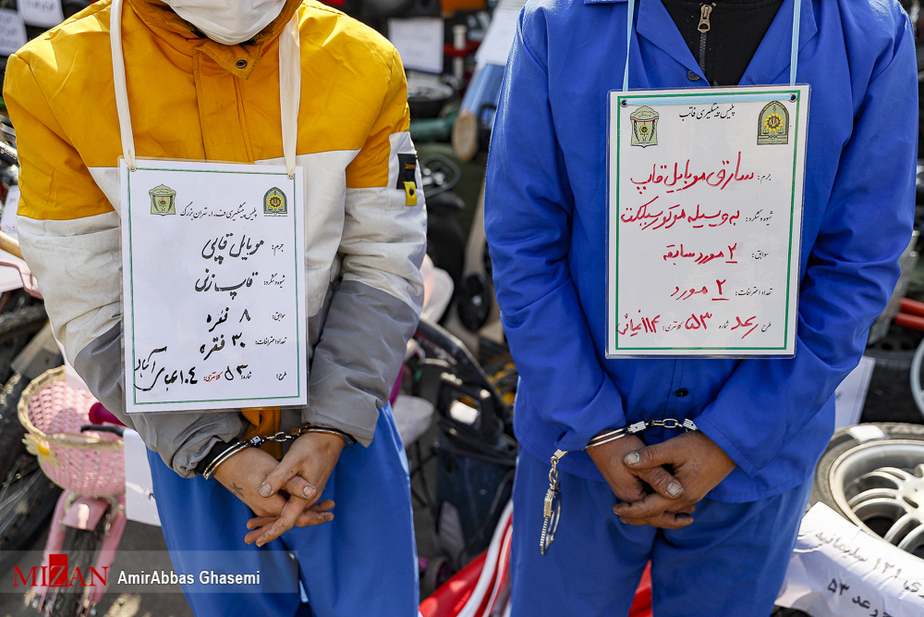 پلیس پیشگیری ف.ا. تهران بزرگ
جرم: موبایل قاپی
شیوه و شگرد: قاپ زنی
سوابق: ۸ فقره
تعداد اعترافات: ۳۰ فقره
طرح: شماره: ۵۳ کلانتری: ۱۰۴ عباس آباد
پلیس پیشگیری فاتب
جرم: سارق موبایل قاپ
شیوه و شگرد: به وسیله موتورسیکلت
سوابق: ۲ مورد سابقه
تعداد اعترافات: ۲ مورد
طرح: رعد شماره: ۵۳ کلانتری: ۱۱۴ غیاثی
رعد ۵۳
MIZAN
AmirAbbas Ghasemi